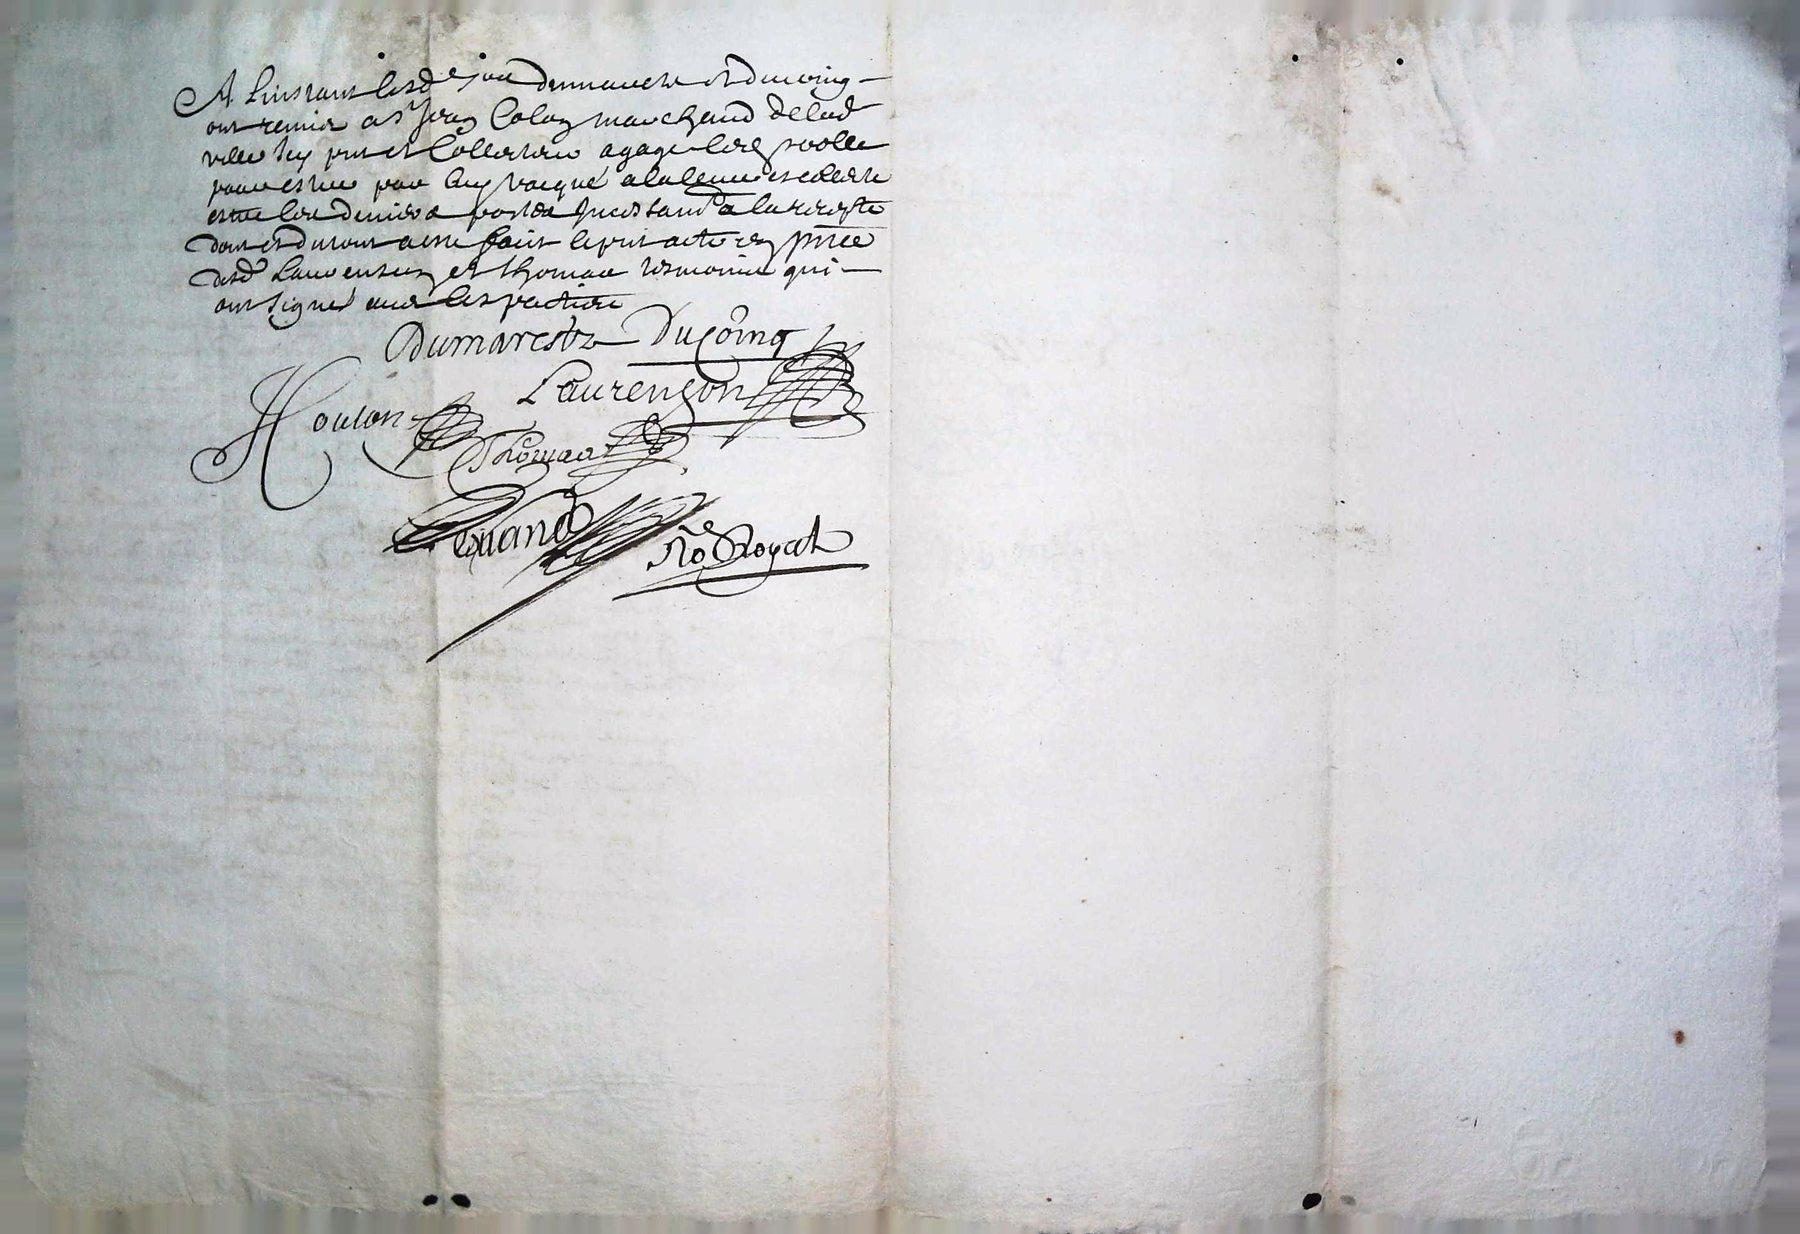 A Linstant lesd srs dumarests et ducoing
ont remis a sr Jean Colon marchand de lad
ville icy pnt et Collecteur a gage led rolle
pour estre par luy vacqué a la levée et collecte
les deniers a porter Incessamt a la recepte
dont et du tout a esté faict le pnt acte en pnce
desd Laurenson et thomas tesmoins qui
ont signé avec les parties
Dumarestz Duçoing
Laurençon
Coulon
Thomas
Nore Royal